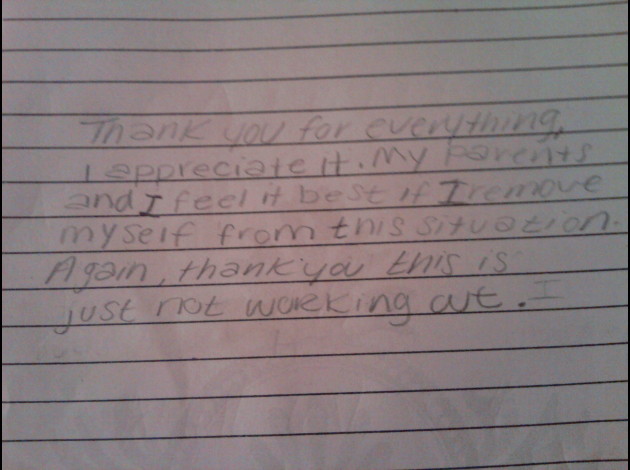 Thank you for everything,
I appreciate it. My parents
and I feel it best if I remove
myself from this situation.
Again, thank you this is
just not working out. I